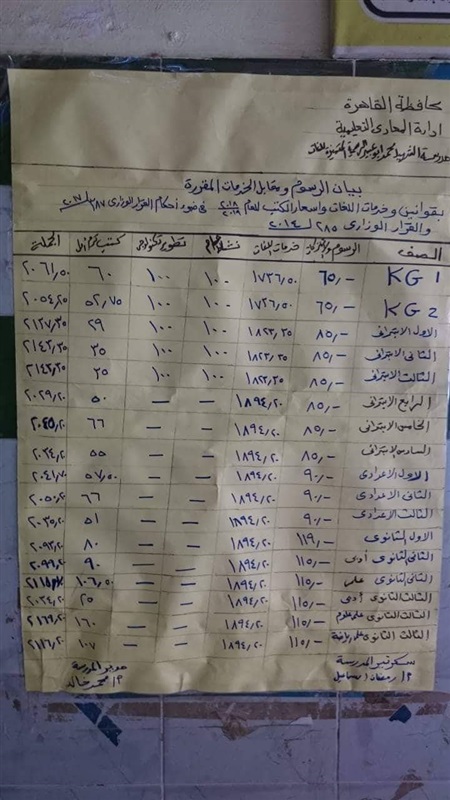 محافظة القاهرة
ادارة المعادى التعليمية
مدرسة الشهيد محمد المتميزة للغات
بيان الرسوم ومقابل الخدمات المقررة
بقوانين وخدمات اللغات واسعار الكتب للعام ٢٠١٨/٢٠١٩ فى ضوء أحكام القرار الوزارى ٢٨٧ لـ ٢٠١٧
والقرار الوزارى ٢٨٥ لـ ٢٠١٤
الصف الرسوم خدمات اللغات نشاط تطوير تكنولوجى كتب الجملة
KG 1 ٦٥,- ١٧٣٦,٥٠ ١٠٠ ١٠٠ ٦٠ ٢٠٦١,٥٠
KG 2 ٦٥,- ١٧٣٦,٥٠ ١٠٠ ١٠٠ ٥٢,٧٥ ٢٠٥٤,٢٥
الاول الابتدائى ٨٥,- ١٨٢٣,٣٥ ١٠٠ ١٠٠ ٢٩ ٢١٣٧,٣٥
الثانى الابتدائى ٨٥,- ١٨٢٣,٣٥ ١٠٠ ١٠٠ ٣٥ ٢١٤٣,٣٥
الثالث الابتدائى ٨٥,- ١٨٢٣,٣٥ ١٠٠ ١٠٠ ٣٥ ٢١٤٣,٣٥
الرابع الابتدائى ٨٥,- ١٨٩٤,٢٠ — — ٥٠ ٢٠٢٩,٢٠
الخامس الابتدائى ٨٥,- ١٨٩٤,٢٠ — — ٦٦ ٢٠٤٥,٢٠
السادس الابتدائى ٨٥,- ١٨٩٤,٢٠ — — ٥٥ ٢٠٣٤,٢٠
الاول الاعدادى ٩٠,- ١٨٩٤,٢٠ — — ٥٧,٥٠ ٢٠٤١,٧٠
الثانى الاعدادى ٩٠,- ١٨٩٤,٢٠ — — ٦٦ ٢٠٥٠,٢٠
الثالث الاعدادى ٩٠,- ١٨٩٤,٢٠ — — ٥١ ٢٠٣٥,٢٠
الاول الثانوى ١١٩,- ١٨٩٤,٢٠ — — ٨٠ ٢٠٩٣,٢٠
الثانى الثانوى أدبى ١١٥,- ١٨٩٤,٢٠ — — ٩٠ ٢٠٩٩,٢٠
الثانى الثانوى علمى ١١٥,- ١٨٩٤,٢٠ — — ١٠٦,٥٠
الثالث الثانوى أدبى ١١٥,- ١٨٩٤,٢٠ — — ٢٥ ٢٠٣٤,٢٠
الثالث الثانوى علمى علوم ١١٥,- ١٨٩٤,٢٠ — — ١٦٠ ٢١٦٩,٢٠
الثالث الثانوى علمى رياضة ١١٥,- ١٨٩٤,٢٠ — — ١٠٧ ٢١١٦,٢٠
سكرتير المدرسة مدير المدرسة
أ/ رمضان اسماعيل أ/ محمد خالد